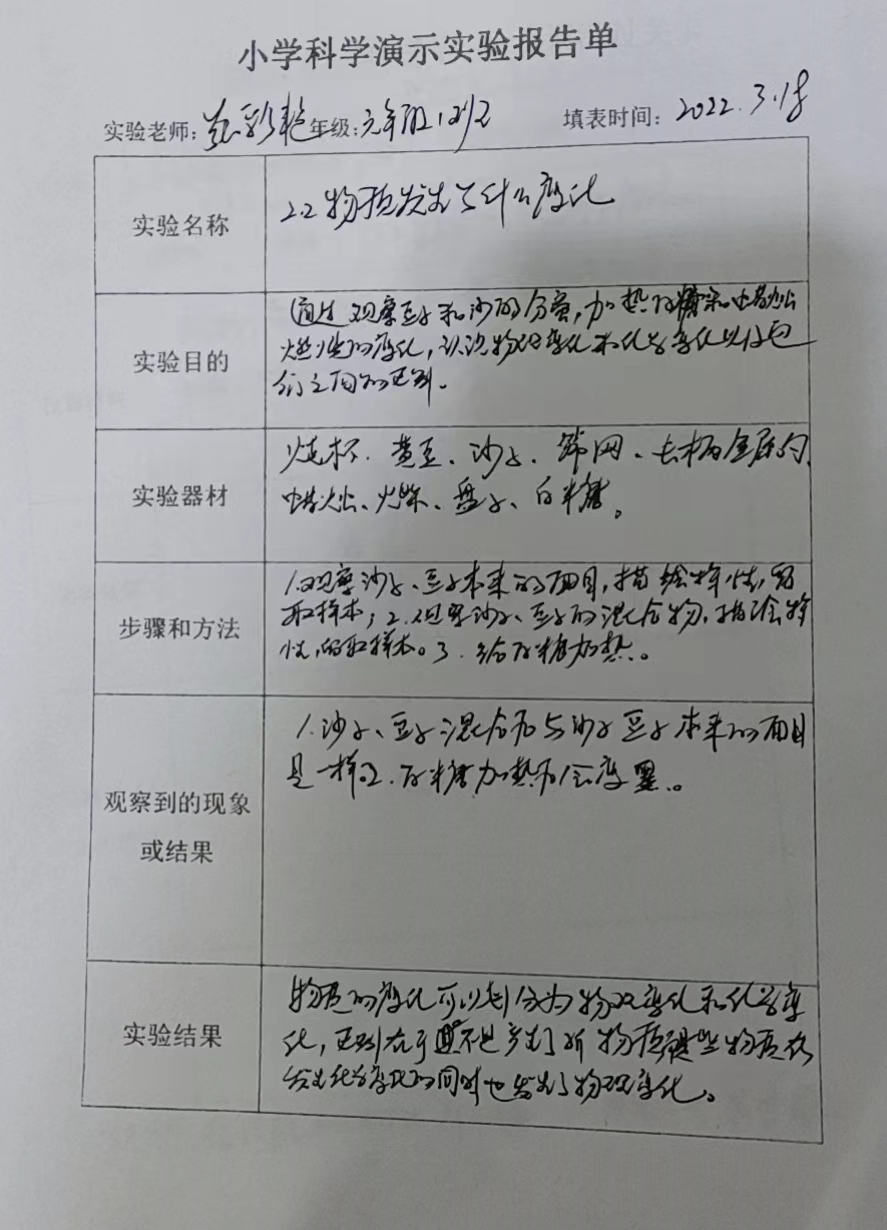 小学科学演示实验报告单
实验老师: 彩艳 年级: 六年级1班 填表时间: 2022.3.18
实验名称
2.2 物质发生了什么变化
实验目的
通过观察豆子和沙的分离,加热白糖和蜡烛
燃烧的变化,认识物理变化和化学变化以及它
们之间的区别。
实验器材
烧杯、黄豆、沙子、筛网、长柄金属勺、
蜡烛、火柴、盘子、白糖。
步骤和方法
1.观察沙子、豆子本来的面目,描绘特性,留
取样本;2.观察沙子、豆子的混合物,描绘特
性,留取样本。3.给白糖加热。
观察到的现象
或结果
1.沙子、豆子混合后与沙子豆子本来的面目
是一样。2.白糖加热后会变黑。
实验结果
物质的变化可以划分为物理变化和化学变
化,区别在于是不是产生了新物质 物质在
发生化学变化的同时也发生了物理变化。